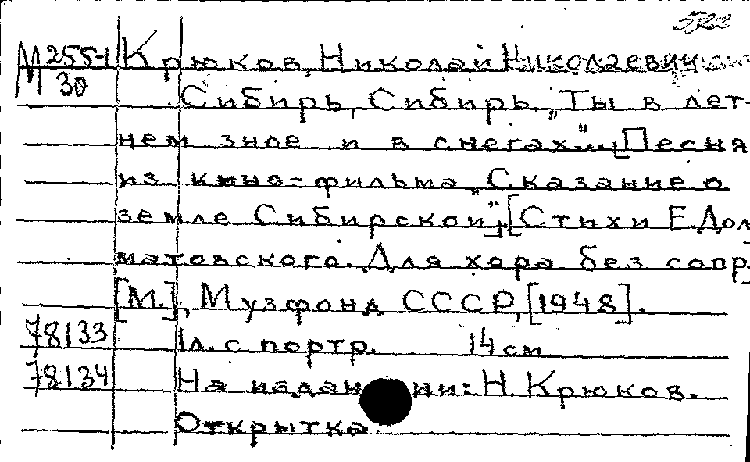 М 255-1
30
Крюков, Николай Николаевич
Сибирь, Сибирь. „Ты в лет-
нем зное и в снегах"... [Песня
из кино-фильма „Сказание о
земле Сибирской"]. [Стихи Е. Дол
матовского. Для хора без сопр
[М.], Музфонд СССР, [1948].
78133 1л. с портр. 14 см
78134 На издании: Н. Крюков.
Открытка.